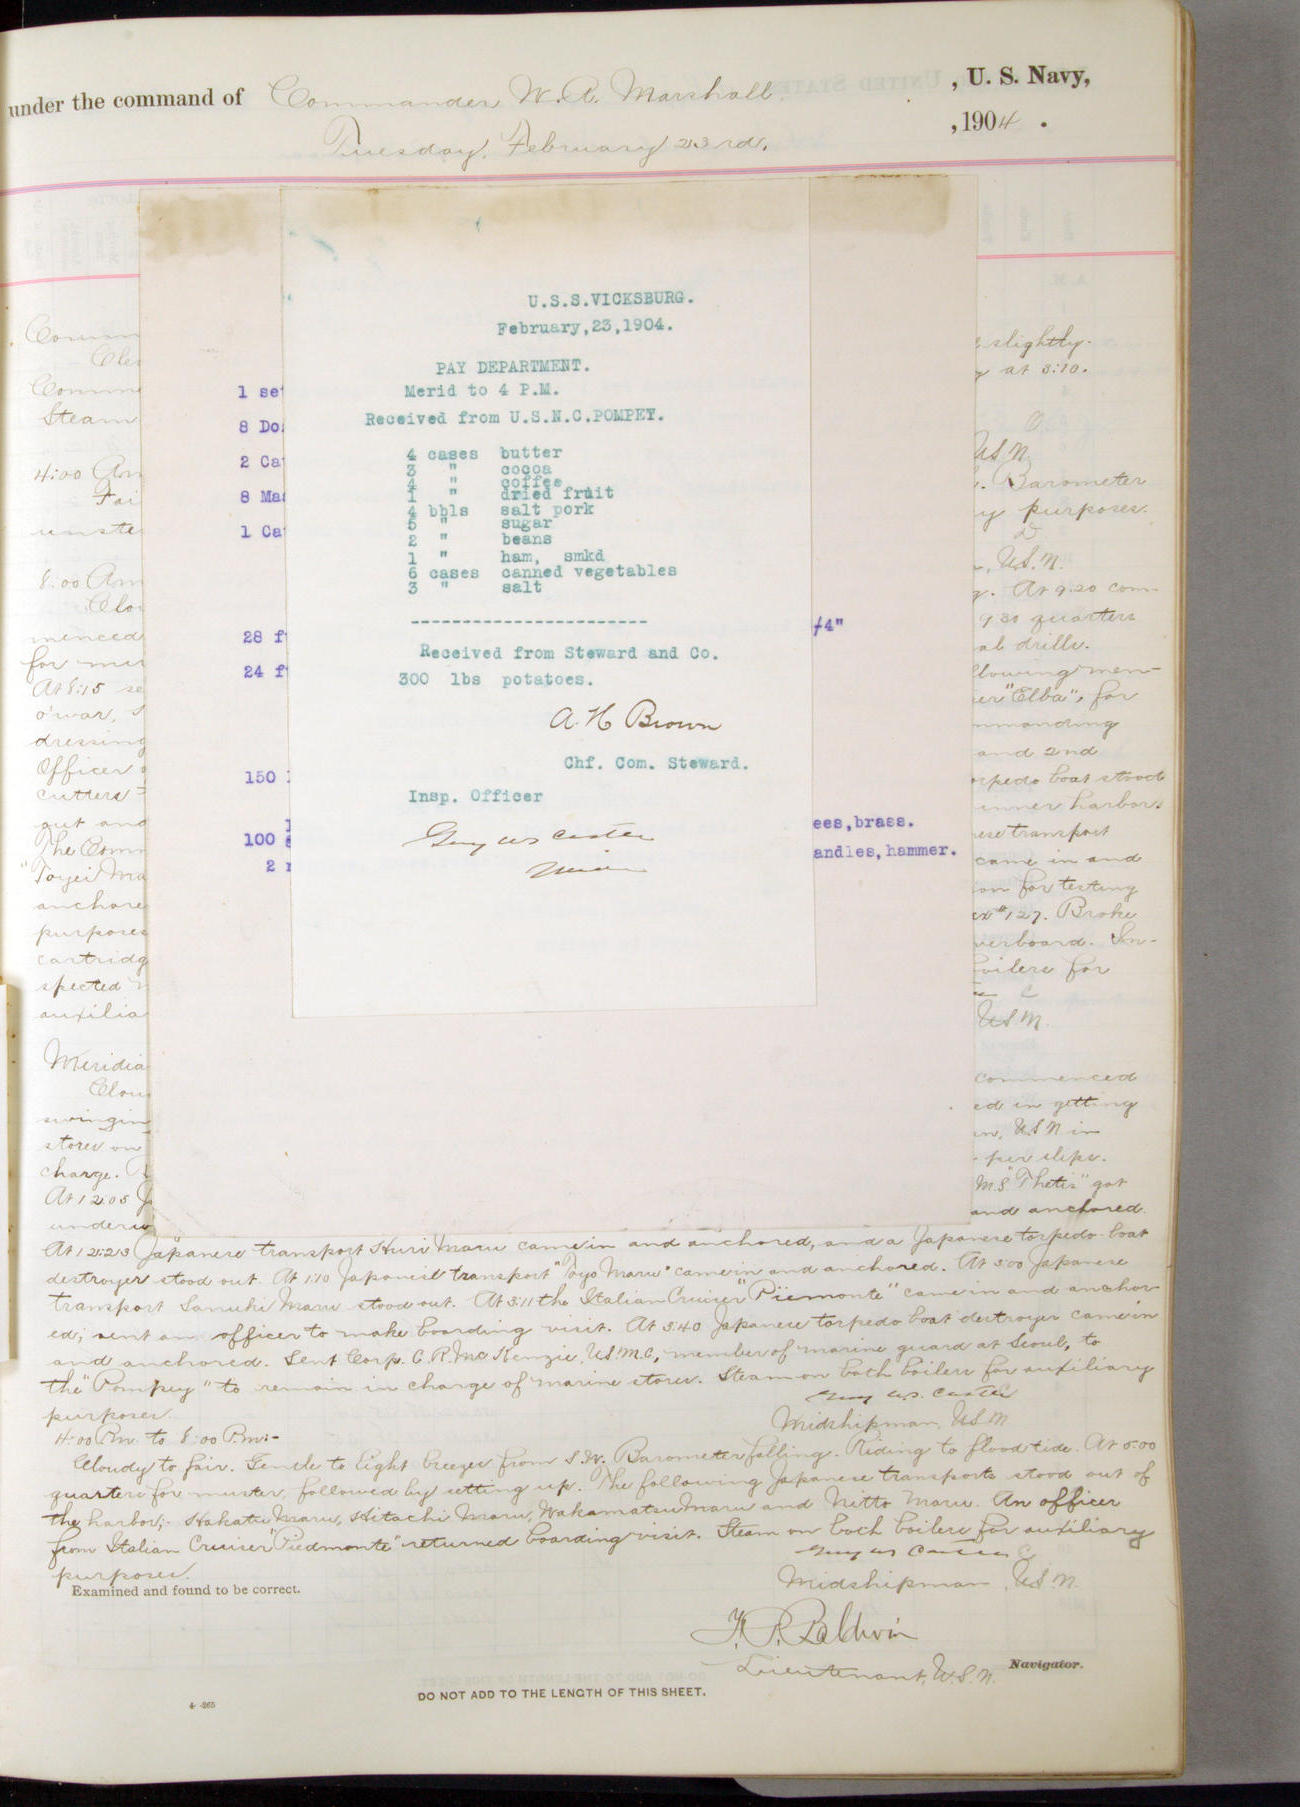 under the command of Commander W. A. Marshall, U. S. Navy,
Tuesday, February 23rd, , 1904 .
U.S.S.VICKSBURG.
February,23,1904.
PAY DEPARTMENT.
Merid to 4 P.M.
Received from U.S.N.C.POMPEY.
4 cases butter
3 " cocoa
4 " coffee
1 " dried fruit
4 bbls salt pork
5 " sugar
2 " beans
1 " ham, smkd
6 cases canned vegetables
3 " salt
-----------------------
Received from Steward and Co.
300 lbs potatoes.
A. H. Brown
Chf. Com. Steward.
Insp. Officer
Guy W S Castle
1 set
8 Do
2 Ca
8 Ma
1 Ca
28 f
24 f
150
100
2
/4"
ees,brass.
andles,hammer.
Comm
Clo
Comme
Steam
4:00 Am
Fai
unste
8:00 Am
Clo
menced
for mu
At 8:15 se
o'war, 
dressing
Officer
cutters
out and
The Comm
"Toyei Ma
anchore
purposes
cartridg
spected
auxilia
Meridia
Clou
swingin
stores on
charge.
At 12.05 J
underw
slightly.
at 3:10.
USN.
. Barometer
y purposes.
, U.S.N.
g. At 9.20 com-
9 30 quarters
al drills.
llowing men-
er "Elba", for
mmanding
and 2nd
orpedo boat stood
inner harbor.
ese transport
came in and
ion for testing
ex #127. Broke
verboard. In-
boilers for
USN.
commenced
ed in getting
n, U.S.N in
per slips.
M.S. "Thetis" got
and anchored.
At 12:23 Japanese transport Huri Maru came in and anchored, and a Japanese torpedo-boat
destroyer stood out. At 1:10 Japanese transport "Toyo Maru" came in and anchored. At 3:00 Japanese
transport Sanuki Maru stood out. At 3:11 the Italian Cruiser "Piemonte" came in and anchor-
ed; sent an officer to make boarding visit. At 3:40 Japanese torpedo boat destroyer came in
and anchored. Sent Corp. C. P. McKenzie, U.S.M.C., member of marine guard at Seoul, to
the "Pompey" to remain in charge of marine stores. Steam on both boilers for auxiliary
purposes.
Guy W. S. Castle
Midshipman, USN
4:00 Pm. to 8:00 P.m:-
Cloudy to fair. Gentle to light breezes from S.W. Barometer falling. Riding to flood tide. At 5:00
quarters for muster, followed by setting up. The following Japanese transports stood out of
the harbor;- Hakata Maru, Hitachi Maru, Wakamatsu Maru and Nitto Maru. An officer
from Italian Cruiser "Piedmonte" returned boarding visit. Steam on both boilers for auxiliary
purposes.
Guy W S Castle
Midshipman, U.S.N.
Examined and found to be correct.
F. P. Baldwin
Lieutenant, U.S.N. Navigator.
4-265
DO NOT ADD TO THE LENGTH OF THIS SHEET.